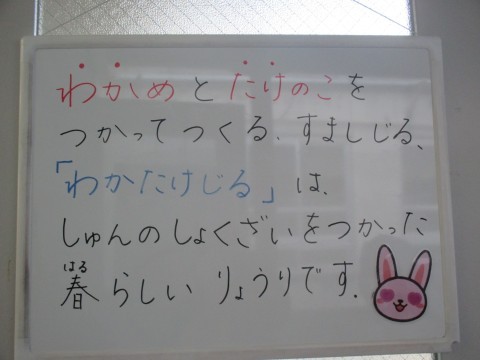 わかめとたけのこを
つかってつくる、すましじる、
「わかたけじる」は、
しゅんのしょくざいをつかった
はる
春らしいりょうりです。